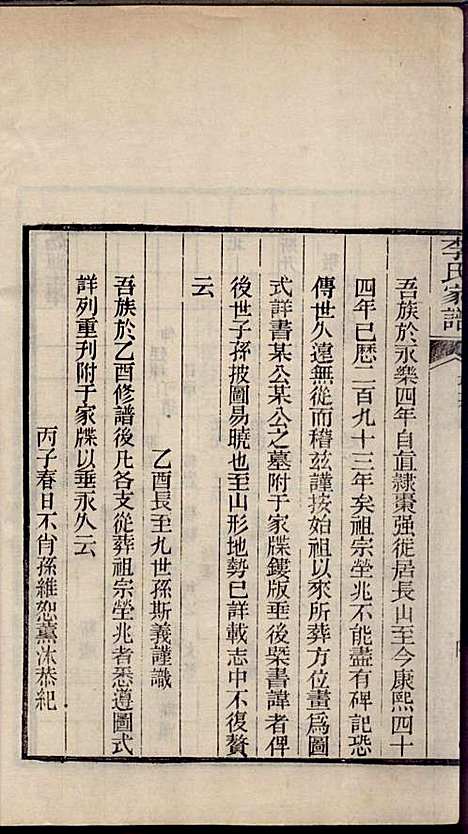 李氏家譜
吾族於永樂四年自直隸棗强徙居長山至今康熙四十
四年已歷二百九十三年矣祖宗塋兆不能盡有碑記恐
傳世久遠無從而稽玆謹按始祖以來所葬方位畫爲圖
式詳書某公某公之墓附于家牒鏤版垂後槩書諱者俾
後世子孫披圖易曉也至山形地勢已詳載志中不復贅
云
乙酉長至九世孫斯義謹識
吾族於乙酉修譜後凡各支從葬祖宗塋兆者悉遵圖式
詳列重刊附于家牒以垂永久云
丙子春日不肖孫維恕薰沐恭紀